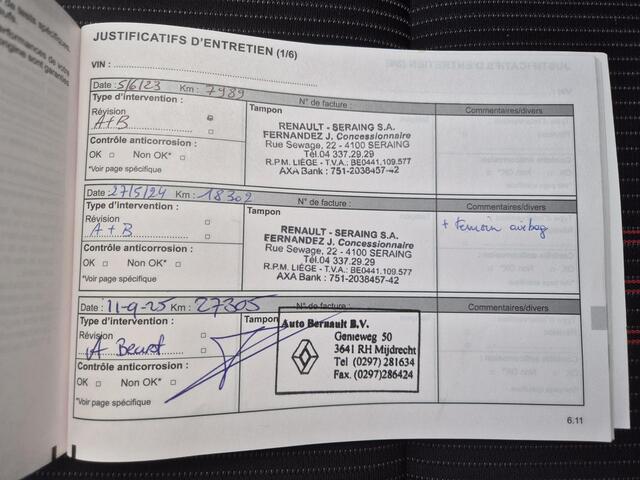 de tests spécifiques
performances de votre
origine sont garanties
JUSTIFICATIFS D'ENTRETIEN (1/6)
VIN :
Date : 5/6/23 Km : 7989 N° de facture :
Type d'intervention : Tampon Commentaires/divers
Révision
A+B
RENAULT - SERAING S.A.
FERNANDEZ J. Concessionnaire
Rue Sewage, 22 - 4100 SERAING
Tél.04 337.29.29
R.P.M. LIÈGE - T.V.A.: BE0441.109.577
AXA Bank : 751-2038457-42
Contrôle anticorrosion :
OK Non OK*
*Voir page spécifique
Date : 27/5/24 Km : 18302 N° de facture :
Type d'intervention : Tampon Commentaires/divers
Révision
A+B
RENAULT - SERAING S.A.
FERNANDEZ J. Concessionnaire
Rue Sewage, 22 - 4100 SERAING
Tél.04 337.29.29
R.P.M. LIÈGE - T.V.A.: BE0441.109.577
AXA Bank : 751-2038457-42
+ temoin airbag
Contrôle anticorrosion :
OK Non OK*
*Voir page spécifique
Date : 11-9-25 Km : 27305 N° de facture :
Type d'intervention : Tampon Commentaires/divers
Révision
A Beurt
Auto Bernault B.V.
Genieweg 50
3641 RH Mijdrecht
Tel (0297) 281634
Fax. (0297)286424
Contrôle anticorrosion :
OK Non OK*
*Voir page spécifique
6.11